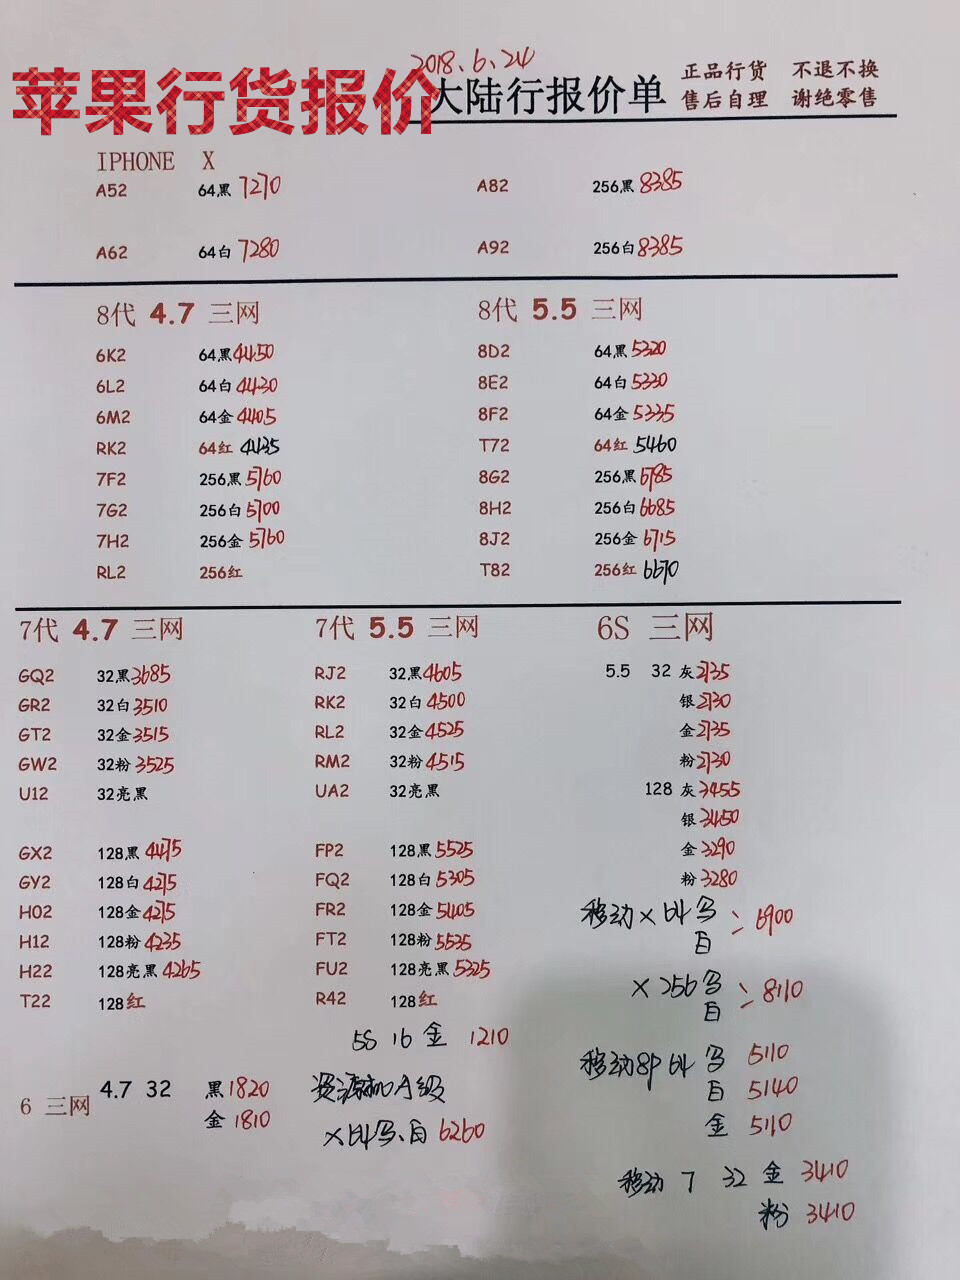 2018.6.24
苹果行货报价
大陆行报价单
正品行货 不退不换
售后自理 谢绝零售
IPHONE X
A52 64黑 7270 A82 256黑 8385
A62 64白 7280 A92 256白 8385
8代 4.7 三网 8代 5.5 三网
6K2 64黑 4450 8D2 64黑 5320
6L2 64白 4430 8E2 64白 5330
6M2 64金 4405 8F2 64金 5335
RK2 64红 4435 T72 64红 5460
7F2 256黑 5760 8G2 256黑 6785
7G2 256白 5700 8H2 256白 6685
7H2 256金 5760 8J2 256金 6715
RL2 256红 T82 256红 6670
7代 4.7 三网 7代 5.5 三网 6S 三网
GQ2 32黑 3685 RJ2 32黑 4605 5.5 32 灰 2735
GR2 32白 3510 RK2 32白 4500 银 2730
GT2 32金 3515 RL2 32金 4525 金 2735
GW2 32粉 3525 RM2 32粉 4515 粉 2730
U12 32亮黑 UA2 32亮黑 128 灰 3455
银 3450
GX2 128黑 4475 FP2 128黑 5525 金 3290
GY2 128白 4275 FQ2 128白 5305 粉 3280
H02 128金 4275 FR2 128金 5405 移动X 64 黑
H12 128粉 4235 FT2 128粉 5535 白 6900
H22 128亮黑 4265 FU2 128亮黑 5325 X 256 黑
T22 128红 R42 128红 白 8110
5S 16 金 1210
移动8P 64 黑 5110
6 三网 4.7 32 黑 1820 资源机A级 白 5140
金 1810 X64黑、白 6260 金 5110
移动 7 32 金 3410
粉 3410